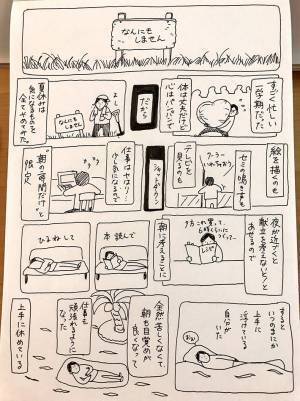 なんにもしません
すごく忙しい
一学期だった
体は丈夫だけど
心はパンパンで
だから
よし
なんにも
しません
夏休みは
気になるものを
全てやめてみた。
絵を描くのも
セミの鳴き声も
クーラー
いれちゃおう。
テレビを
見るのも
シャットダウン
仕事はやはり
少し気になるので
朝の一時間だけ
限定
夜が近づくと
献立を考えないと!と
あせるので
夕方これ買って、
6時くらいに
つくって…
レシピ
朝に考えることに
本読んで
ひるねして
すると
いつのまにか
上手に
浮けている
自分が
いた
全然苦しくなくて
朝も目覚めが
良くなって
仕事も
頑張れるように
なった
上手に休めている